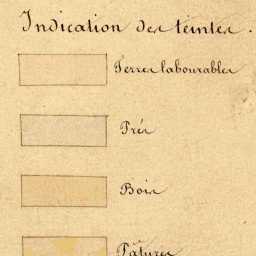 Indication des teintes.
Terres labourables
Prés
Bois
Pâtures